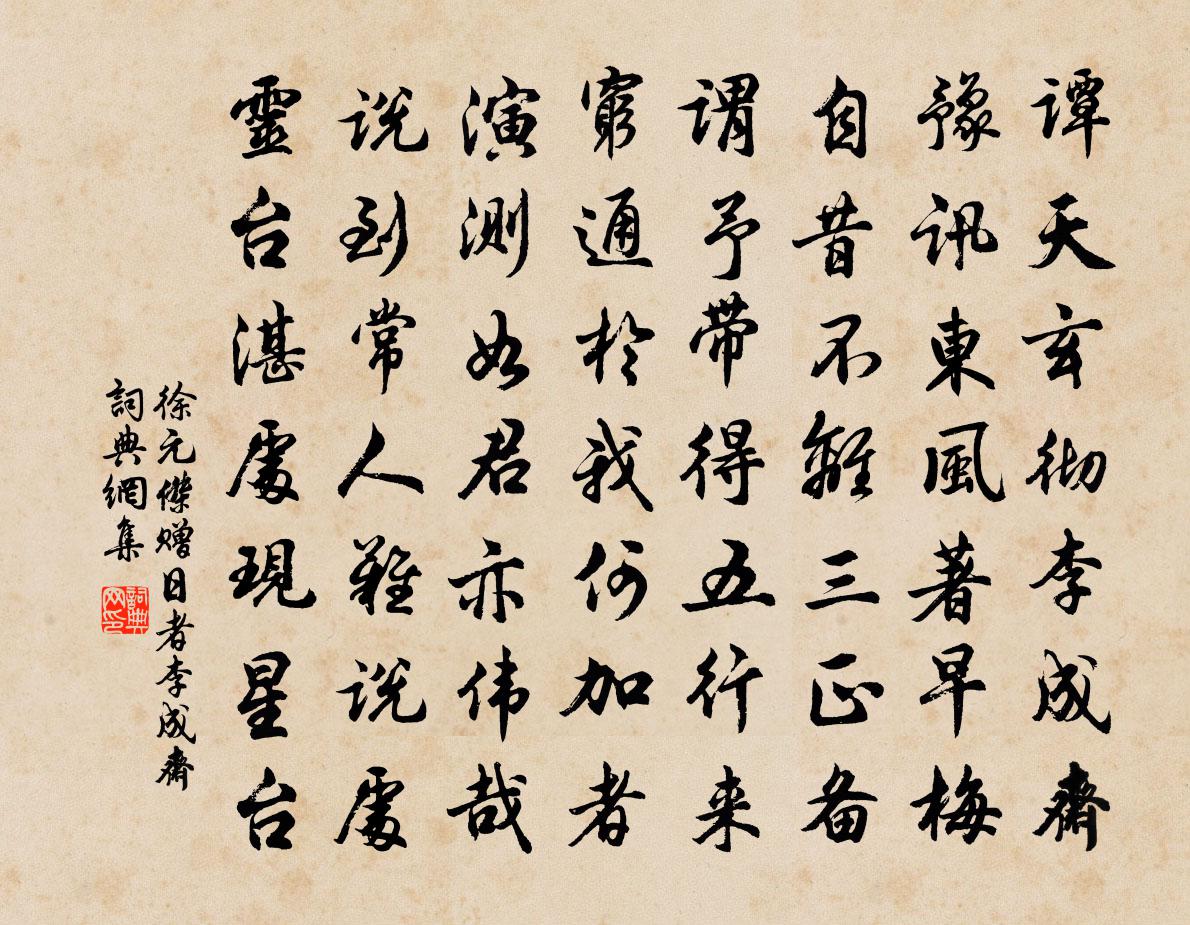 譚天玄彻李成齋
豫訊東風著早梅
自昔不離三正备
謂予带得五行来
窮通於我何加者
演测如君亦伟哉
說到常人難說處
靈台湛處現星台
徐元傑赠日者李成齋
詞典網集
詞典网印